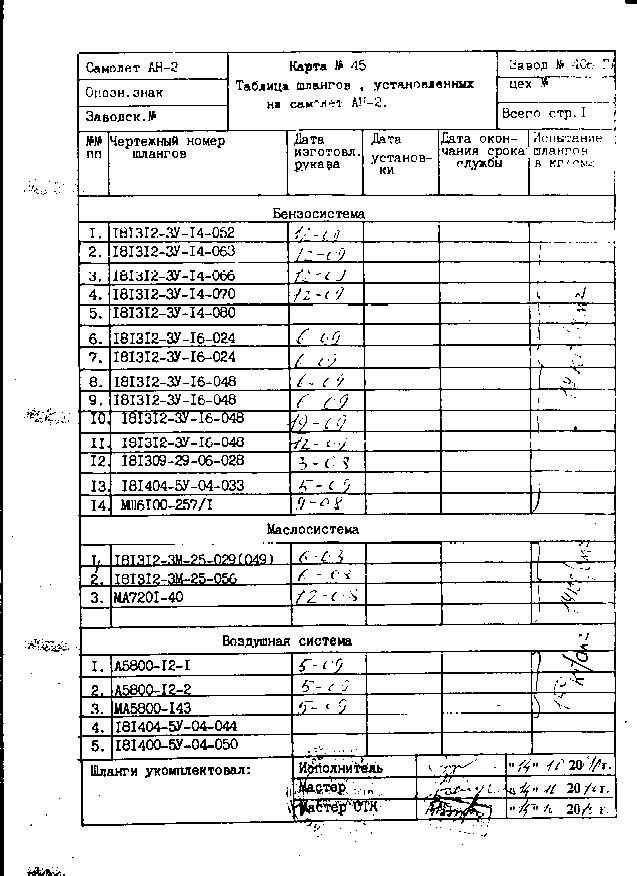 Самолет АН-2
Опозн.знак
Заводск.№
Карта № 45
Таблица шлангов , установленных
на самолет АН-2.
Завод №
цех №
Всего стр.I
№№ пп
Чертежный номер шлангов
Дата изготовл. рукава
Дата установ- ки
Дата окон- чания срока службы
Испытание шлангов в кг/см2
Бензосистема
I. I8I3I2-3У-I4-052 12-09
2. I8I3I2-3У-I4-063 12-09
3. I8I3I2-3У-I4-066 12-09
4. I8I3I2-3У-I4-070 12-09
5. I8I3I2-3У-I4-080
6. I8I3I2-3У-I6-024 6-09
7. I8I3I2-3У-I6-024 6-09
8. I8I3I2-3У-I6-048 6-09
9. I8I3I2-3У-I6-048 6-09
I0. I8I3I2-3У-I6-048 12-09
II. I8I3I2-3У-I6-048 12-09
I2. I8I309-29-06-028 3-08
I3. I8I404-5У-04-033 5-09
I4. МШ6I00-257/I 9-08
Маслосистема
I. I8I3I2-3М-25-029(049) 6-03
2. I8I3I2-3М-25-056 6-08
3. МА720I-40 12-08
Воздушная система
I. А5800-I2-I 5-09
2. А5800-I2-2 5-09
3. МА5800-I43 5-09
4. I8I404-5У-04-044
5. I8I400-5У-04-050
Шланги укомплектовал:
Исполнитель "14" 20 г.
Мастер "14" 20 г.
Мастер ОТК "14" 20 г.